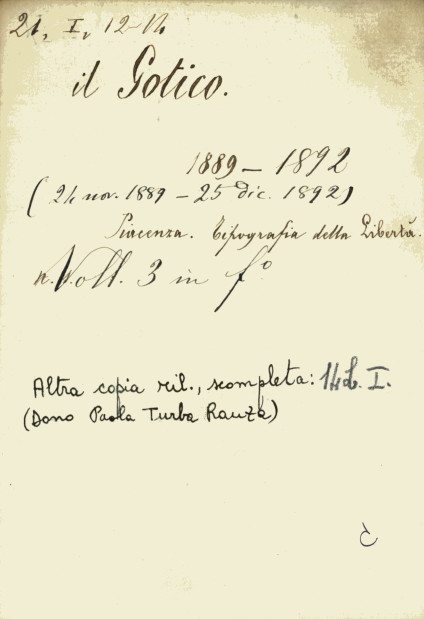 21, I, 12-14
il Gotico.
1889 - 1892
(24 nov. 1889 - 25 dic. 1892)
Piacenza. Tipografia della Libertà.
n. Voll. 3 in f°
Altra copia ril., scompleta: 14L. I.
(Dono Paola Turba Rauza)